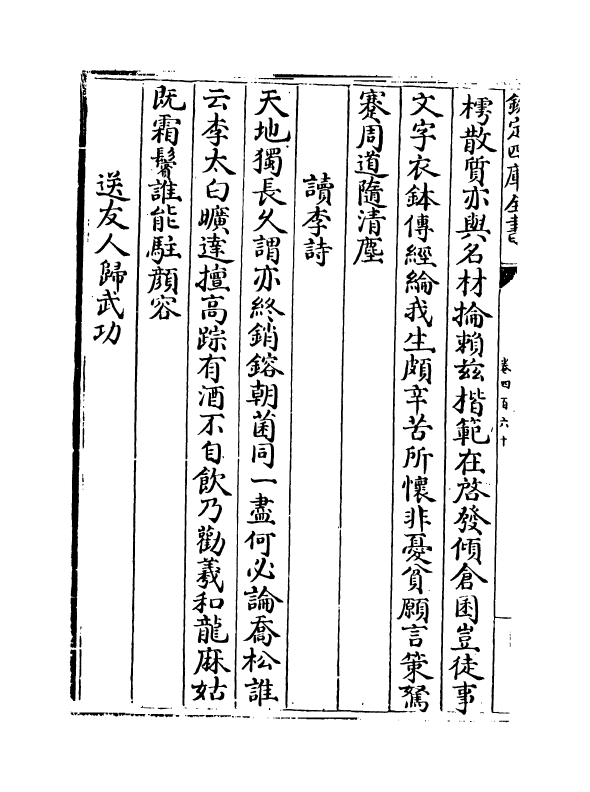 欽定四庫全書
卷四百六十
樗散質亦與名材掄賴兹揩範在啓發傾倉囷豈徒事
文字衣鉢傳經綸我生頗辛苦所懷非憂貧願言策駑
蹇周道隨清塵
讀李詩
天地獨長久謂亦終銷鎔朝菌同一盡何必論喬松誰
云李太白曠達擅高踪有酒不自飲乃勸羲和龍麻姑
既霜鬢誰能駐顔容
送友人歸武功